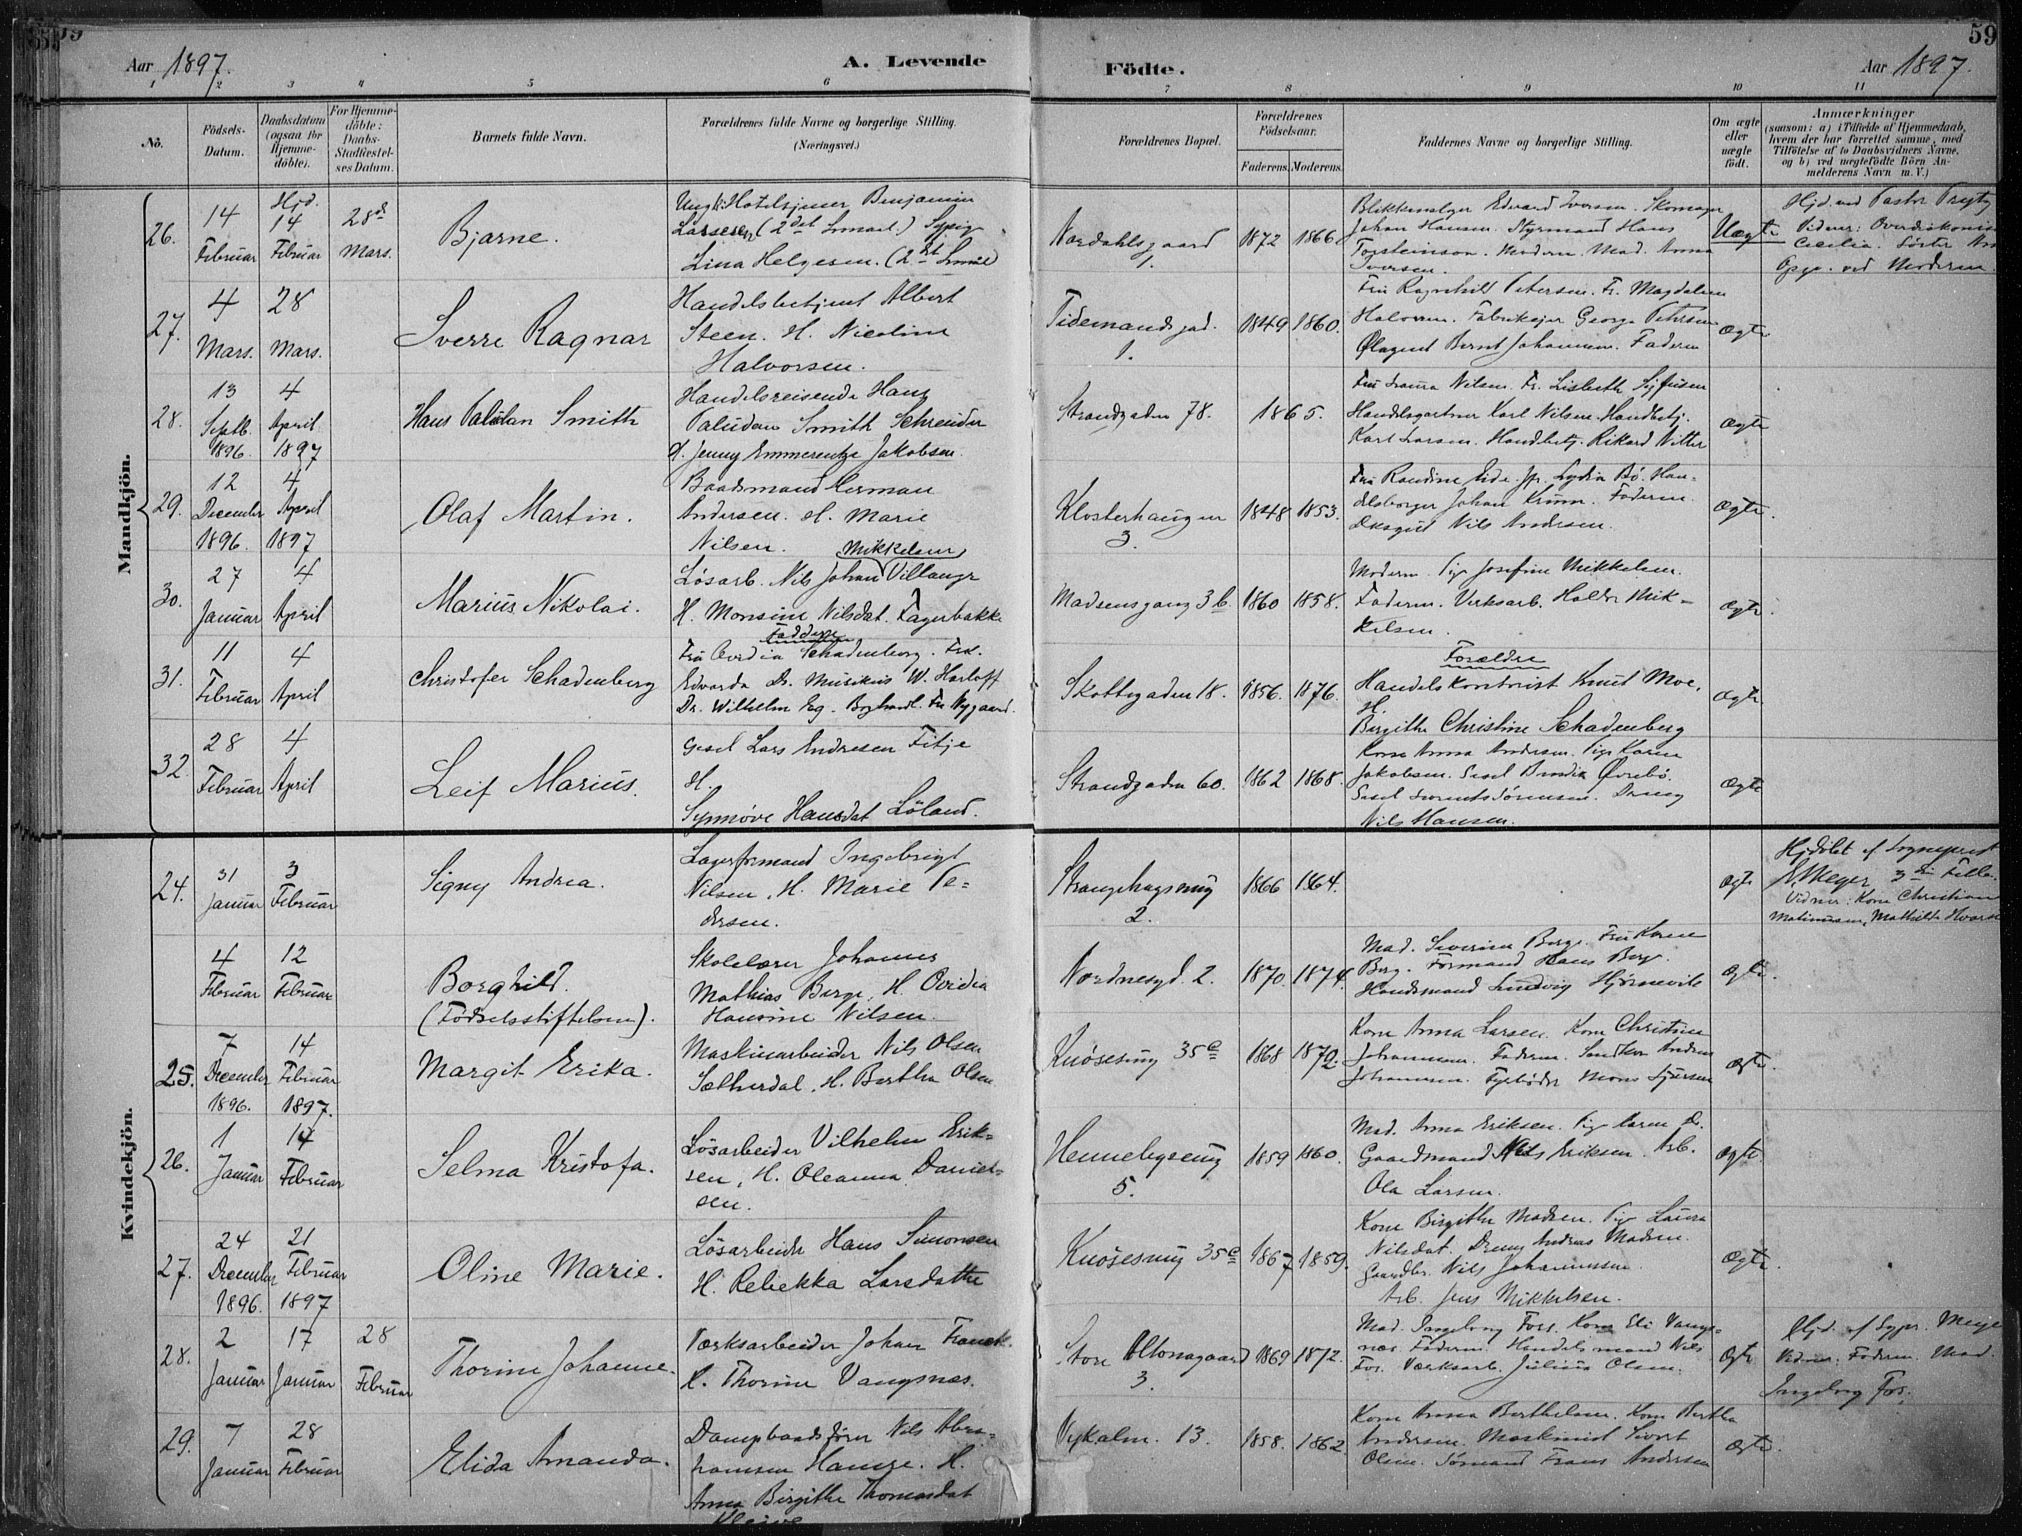 59
Aar 1897.
A. Levende
Födte.
Aar 1897.
1 2 3 4 5 6 7 8 9 10 11
No.
Födsels-
Datum.
Daabsdatum
(ogsaa for
Hjemme-
döbte).
For Hjemme-
döbte:
Daabs-
Stadfæstel-
ses Datum.
Barnets fulde Navn.
Forældrenes fulde Navne og borgerlige Stilling.
(Næringsvei.)
Forældrenes Bopæl.
Forældrenes
Födselsaar.
Faderens. Moderens.
Faddernes Navne og borgerlige Stilling.
Om ægte
eller
uægte
födt.
Anmærkninger
(saasom: a) i Tilfælde af Hjemmedaab,
hvem der har forrettet samme, med
Tilföielse af to Daabsvidners Navne,
og b) ved uægtefödte Börn An-
melderens Navn m. V.)
Mandkjön.
26.
14
Februar
Hjd.
14
Februar
28de
Mars.
Bjarne.
Ungk: Hotelejener Benjamin
Larsen (2det Smaal.) Sypige
Lina Helgesen. (2det Smaal)
Nordahlsgaard
1.
1872 1866
Johan Hansen. Styrmand Hans
Torsteinson. Modern. Mad. Anna
Iversen.
Uægte
Hjd. ved Pastor
Cecilia. Söster
Opgr. ved Moderen.
27.
4
Mars.
28
Mars.
Sverre Ragnar
Handelsbetjent Albert
Steen. H. Nicoline
Halvorsen.
Tidemandsgad.
1.
1849 1860.
Fru Ragnhild Petersen. Fr. Magdalene
Halvorsen. Fabrikejer George Petersen
Ølagent Bernt Johannesen. Faderen
Ægte
28.
13
Septb.
1896.
4
April
1897
Hans Paludan Smith
Handelsreisende Hans
Paludan Smith Schreuder
H. Jenny Emmerentze Jakobsen.
Strandgaden 78.
1865.
Handelsgartner Karl Nilsen. Handbetj.
Karl Larsen. Handbetj. Rikard Vitter
Ægte
29.
12
December
1896.
4
April
1897
Olaf Martin.
Baadsmand Herman
Andersen. H. Marie
Nilsen.
Klosterhaugen
3.
1848 1853.
Fru Randine Eide. Jfr. Lydia Bö. Han-
delsborger Johan Krumm. Faderen.
Nils Andersen.
Ægte.
30.
27
Januar
4
April
Marius Nikolai.
Mikkelsen
Lösarb. Nils Johan Villanger
H. Monsine Nilsdat. Fagerbakke
Madsensgang 3b.
1860 1858.
Moderen. Pige Josefine Mikkelsen.
Faderen. Verksarb. Halvor Mik-
kelsen.
Ægte.
31.
11
Februar
4
April
Christofer Schadenberg
Faddere
Fru Ovedia Schadenberg. Frk.
Edvarda Dr. Musikus W. Harloff
Dr. Wilhelm Eg. Boghandl. Fr. Nygaard.
Skottegaden 18.
1856. 1876.
Forældre
Handelskontorist Knut Moe.
H.
Birgithe Christine Schadenberg
Ægte.
32.
28
Februar
4
April
Leif Marius.
Gesel Lars Endresen Fitje
H.
Synnöve Hansdat Löland.
Strandgaden 60.
1862 1868.
Kone Anna Andersen. Pige Karen
Jakobsen. Gesel Övrebö.
Gesel Lorents Sörensen. Dreng
Nils Hansen.
Ægte
Kvindekjön.
24.
31
Januar
3
Februar
Signy Andrea.
Lagerformand Ingebrigt
Nilsen, H. Marie Pe-
dersen.
Strangehagsmug
2.
1866 1864.
Ægte
Hjdöbt af Sogneprest
Meyer,
Vidner: Kone Christiane
Mathilde
4
Februar
12
Februar
Borghild.
(Födselsstiftelsen).
Skolelærer Johannes
Mathias Berge, H. Ovidia
Hansine Nilsen.
Nordnesgd. 2.
1870. 1874.
Mad. Severine Berge. Fru Karen
Berg. Formand Hans Berg.
Handsmand Ludvig Hjörnevik
Ægte.
25.
7
December
1896.
14
Februar
1897.
Margit Erika.
Maskinarbeider Nils Olsen
Sætherdal, H. Bertha Olsen
Knösesmug 35c
1868 1872.
Kone Anna Larsen. Kone Christine
Johannesen. Faderen. Andreas
Johannesen. Fyrböder Mons
Ægte.
26.
1
Januar
14
Februar
Selma Kristofa.
Lösarbeider Vilhelm Erik-
sen, H. Oleanna Daniel-
sen.
Hennebysmug
5.
1859 1860.
Mad. Anna Eriksen. Pige Karen Dr.
Gaardmand Nils Eriksen. Arb.
Ola Larsen.
Ægte.
27.
24
December
1896.
21
Februar
1897
Oline Marie.
Lösarbeider Hans Simonsen
H. Rebekka Larsdatter
Knösesmug 35c
1867 1859.
Kone Birgithe Madsen. Pige Laura
Nilsdat. Dreng Andreas Madsen.
Gaardbr. Nils Johannessen.
Arb. Jens Mikkelsen.
Ægte.
28.
2
Januar
17
Januar
28
Februar
Thorine Johanne.
Værksarbeider Johan Franck.
H. Thorine Vangsnes.
Store Altonagaard
3.
1869 1872.
Mad. Ingeborg Fors. Kone Eli Vangs-
nes. Faderen. Handelsmand Nils
Fos. Værksarb. Julius Olsen.
Ægte
Hjd. af Sogpr. Meyer
Vidner: Faderen. Mad.
Ingeborg Fos.
29.
7
Januar
28
Februar
Elida Amanda.
Dampbaadsförer Nils Abra-
hamsen Hauge. H.
Anna Birgithe Thomasdat
Kleive
Nykalm. 13.
1858. 1862
Kone Anna Berthelsen. Kone Bertha
Andersen. Maskinist Sivert
Olsen. Sömand Frans Andersen
Ægte.